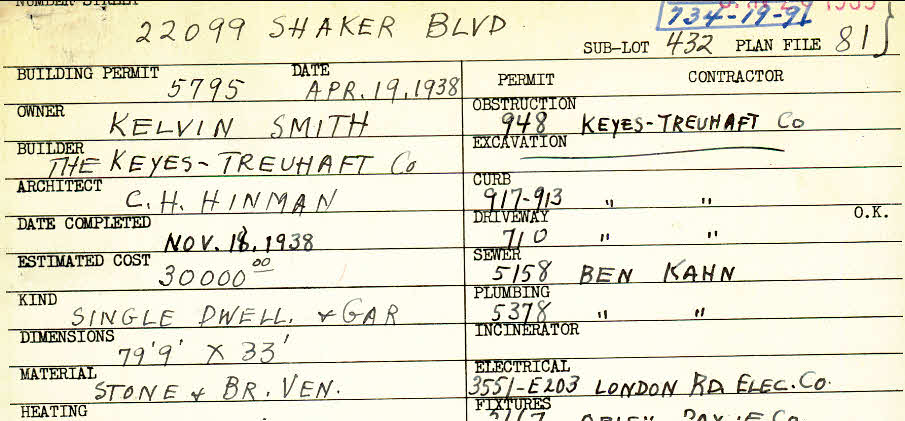 NUMBER STREET
22099 SHAKER BLVD
734-19-91
SUB-LOT 432 PLAN FILE 81
BUILDING PERMIT 5795 DATE APR. 19, 1938
OWNER KELVIN SMITH
BUILDER THE KEYES-TREUHAFT Co
ARCHITECT C. H. HINMAN
DATE COMPLETED NOV. 18, 1938
ESTIMATED COST 30000 00
KIND SINGLE DWELL. & GAR
DIMENSIONS 79'9" X 33'
MATERIAL STONE & BR. VEN.
HEATING
PERMIT CONTRACTOR
OBSTRUCTION 948 KEYES-TREUHAFT Co
EXCAVATION
CURB 917-913 " "
DRIVEWAY 710 " " O.K.
SEWER 5158 BEN KAHN
PLUMBING 5378 " "
INCINERATOR
ELECTRICAL 3551-E203 LONDON RD. ELEC. Co.
FIXTURES